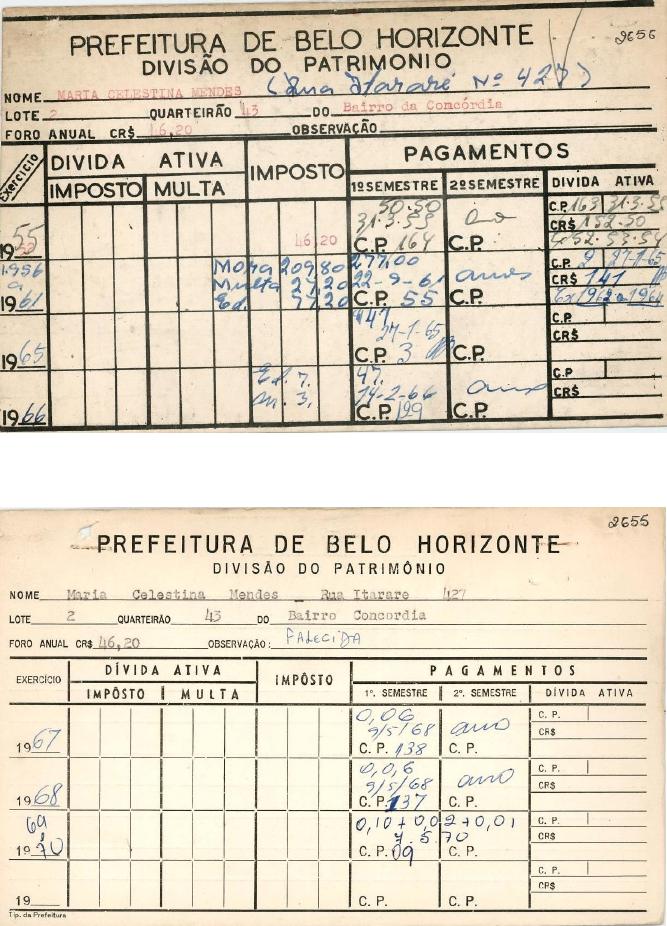 2656
PREFEITURA DE BELO HORIZONTE
DIVISÃO DO PATRIMONIO
NOME MARIA CELESTINA MENDES (Rua Itararé Nº 427)
LOTE 2 QUARTEIRÃO 43 DO Bairro da Concórdia
FORO ANUAL CR$ 46,20 OBSERVAÇÃO
Exercício DIVIDA ATIVA IMPOSTO PAGAMENTOS
IMPOSTO MULTA 1º SEMESTRE 2º SEMESTRE DIVIDA ATIVA
50.50 C.P. 163 31-3-55
31-3-55 ano CR$ 152.50
1955 46,20 C.P. 164 C.P. 52-53-54
1956 Mora 209,80 277,00 C.P. 2 27-1-65
a Multa 27,20 22-9-61 anos CR$ 141
1961 Ed. 77,20 C.P. 55 C.P. Ex 1962 a 1964
47 C.P.
27-1-65 CR$
1965 C.P. 3 C.P.
Ed. 7. 47. C.P
m. 3. 14-2-66 ano CR$
1966 C.P. 199 C.P.
2655
PREFEITURA DE BELO HORIZONTE
DIVISÃO DO PATRIMÔNIO
NOME Maria Celestina Mendes _ Rua Itarare 427
LOTE 2 QUARTEIRÃO 43 DO Bairro Concordia
FORO ANUAL CR$ 46,20 OBSERVAÇÃO: FALECIDA
EXERCÍCIO DÍVIDA ATIVA IMPÔSTO PAGAMENTOS
IMPÔSTO MULTA 1º. SEMESTRE 2º. SEMESTRE DÍVIDA ATIVA
0,06 C. P.
9/5/68 ano CR$
1967 C. P. 138 C. P.
0,0,6 C. P.
9/5/68 ano CR$
1968 C. P. 137 C. P.
69 0,10 + 0,02 + 0,01 C. P.
7.5.70 CR$
1970 C. P. 09 C. P.
C. P.
CR$
19 C. P. C. P.
Tip. da Prefeitura